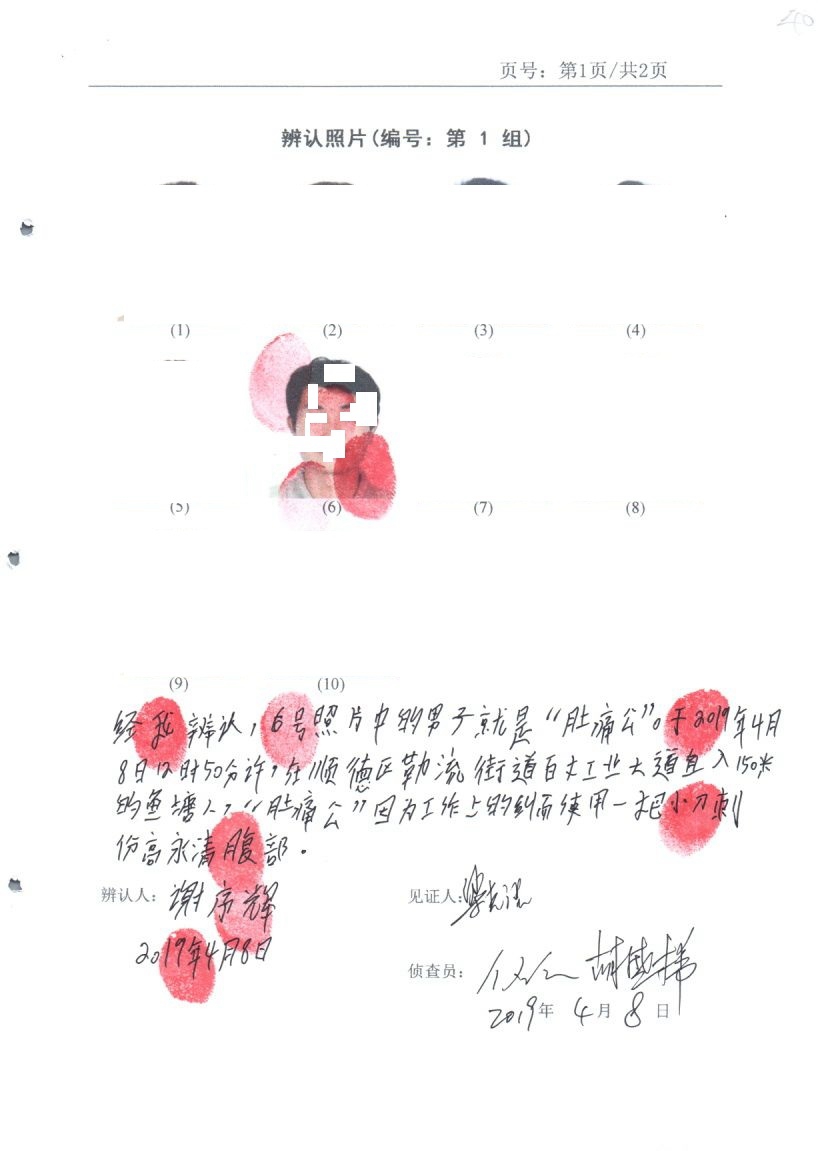 页号：第1页/共2页
辨认照片(编号：第 1 组)
(1) (2) (3) (4)
(5) (6) (7) (8)
(9) (10)
经我辨认，6号照片中的男子就是“肚痛公”。于2019年4月
8日12时50分许，在顺德区勒流街道百丈工业大道直入150米
的鱼塘人，“肚痛公”因为工作上的纠而使用一把小刀刺
份高永清腹部。
辨认人：谢序辉
见证人：
2019年4月8日
侦查员：
2019年4月8日